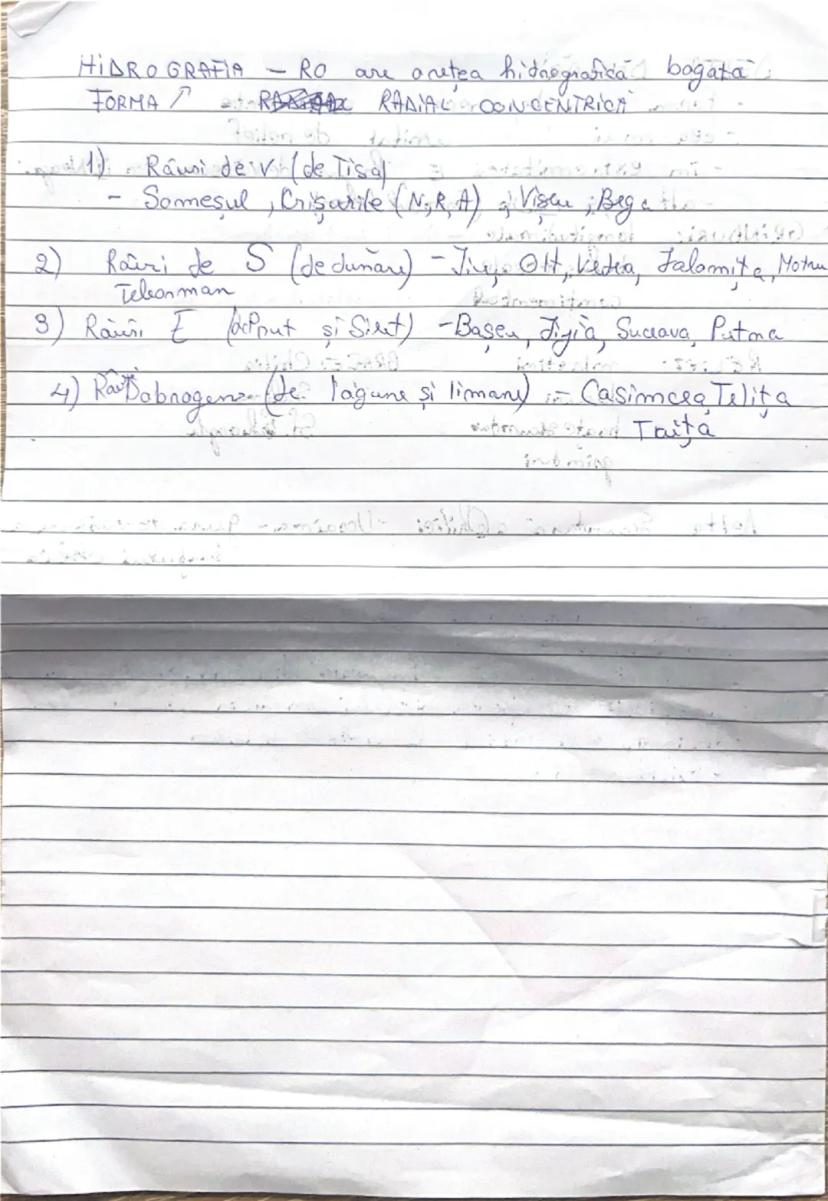 HIDROGRAFIA – RO are o rețea hidrografică bogată
FORMA ↗ RADIAL CONCENTRICĂ
1) Râuri de V (de Tisa)
- Someșul, Crișurile (N, R, A), Vișeu, Bega
2) Râuri de S (de dunăre) – Jiu, Olt, Vedea, Ialomița, Motru
Teleorman
3) Râuri E (de Prut și Siret) – Bașeu, Jijia, Suceava, Putna
4) Râu Dobrogene (de lagune și limane) – Casimcea, Telița
Taița